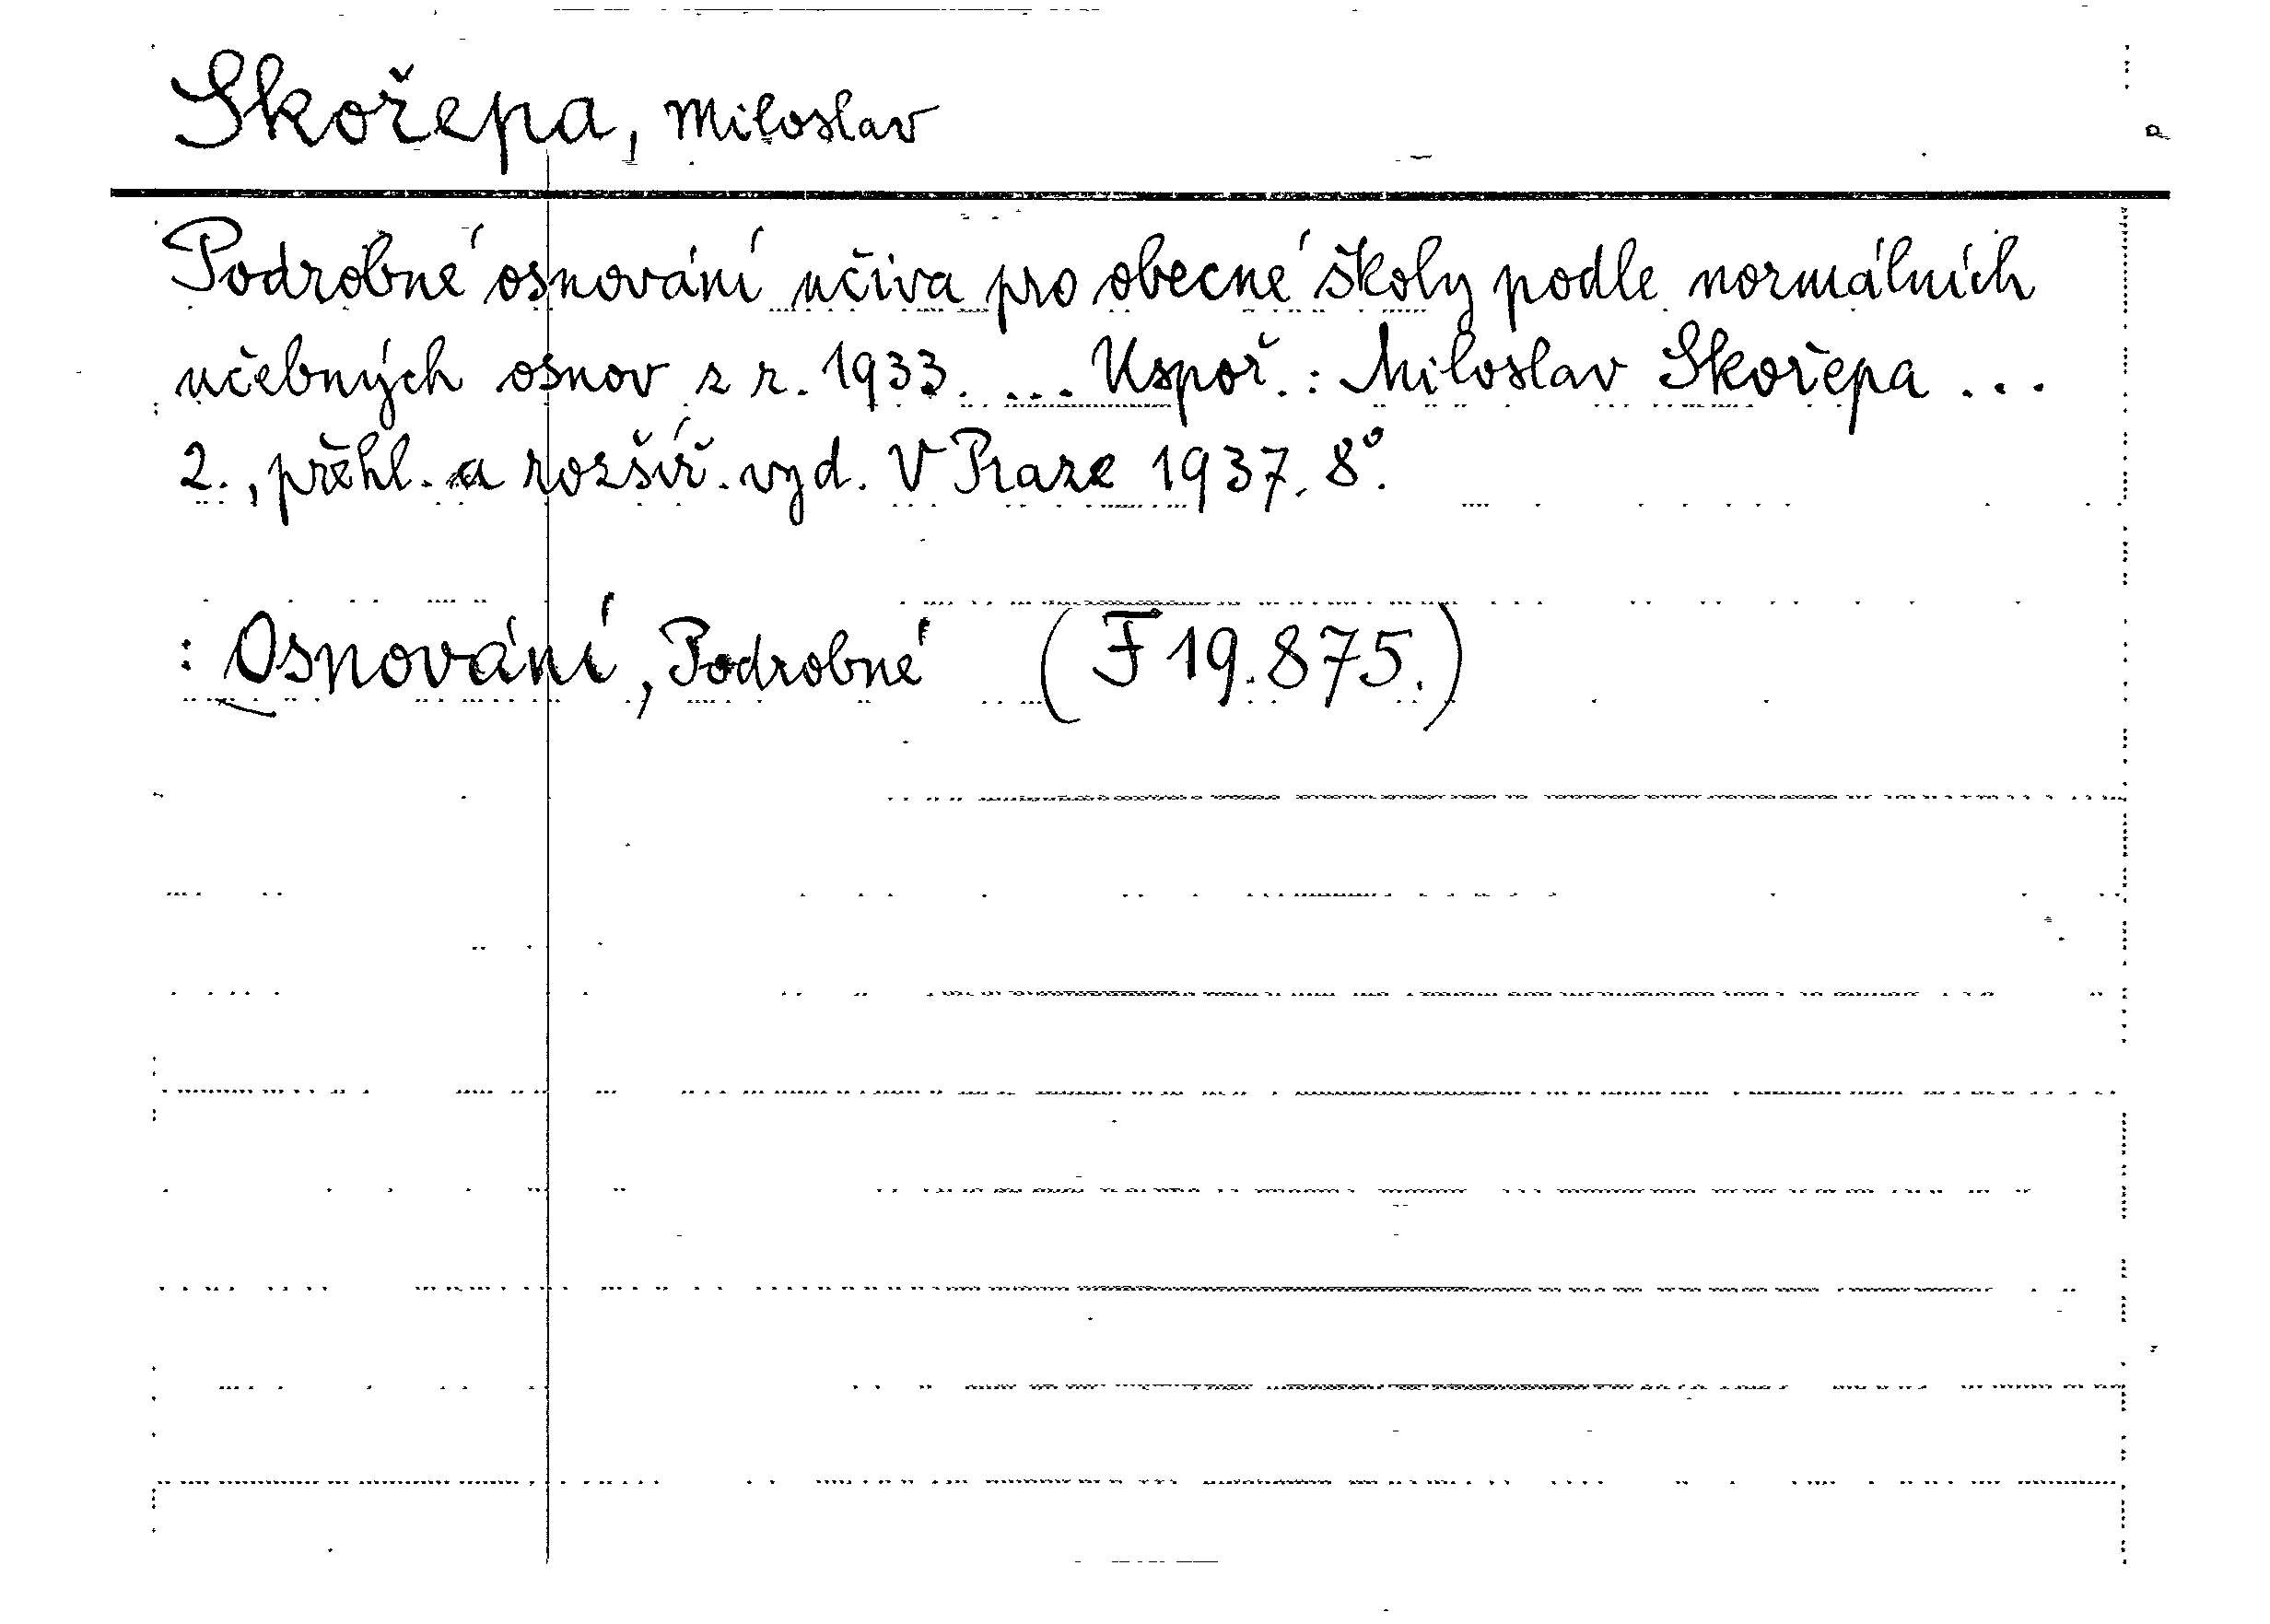 Skořepa, Miloslav
Podrobné osnování učiva pro obecné školy podle normálních
učebných osnov z r. 1933. ... Uspoř.: Miloslav Skořepa ...
2., přehl. a rozšíř. vyd. V Praze 1937. 8°.
: Osnování, Podrobné (F 19.875.)